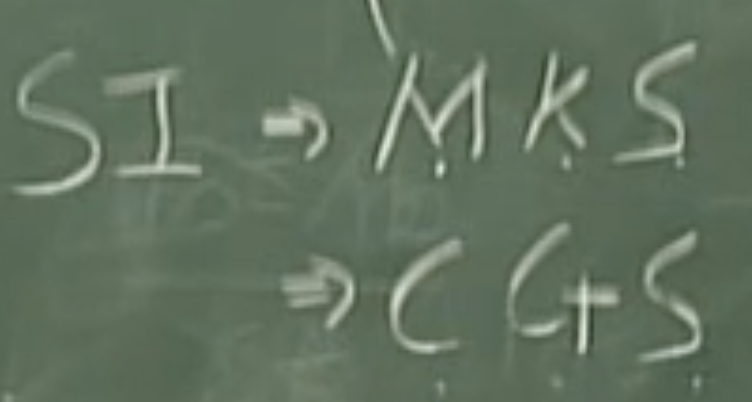 SI ⇒ M K S
⇒ C G S